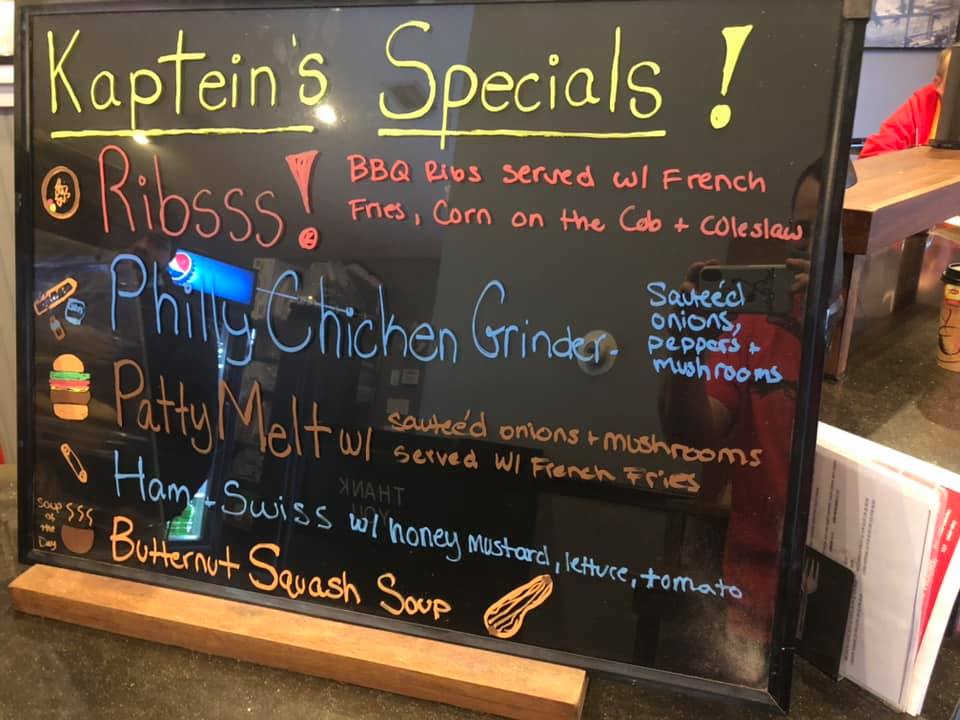 Kaptein's Specials!
Ribsss! BBQ Ribs served w/ French
Fries, Corn on the Cob + Coleslaw
Philly Chicken Grinder-
Sauteéd
onions,
peppers +
mushrooms
Patty Melt w/ sauteéd onions + mushrooms
served w/ French Fries
Ham + Swiss w/ honey mustard, lettuce, tomato
Soup
of
the
Day
Butternut Squash Soup
THANK
YOU
pepsi